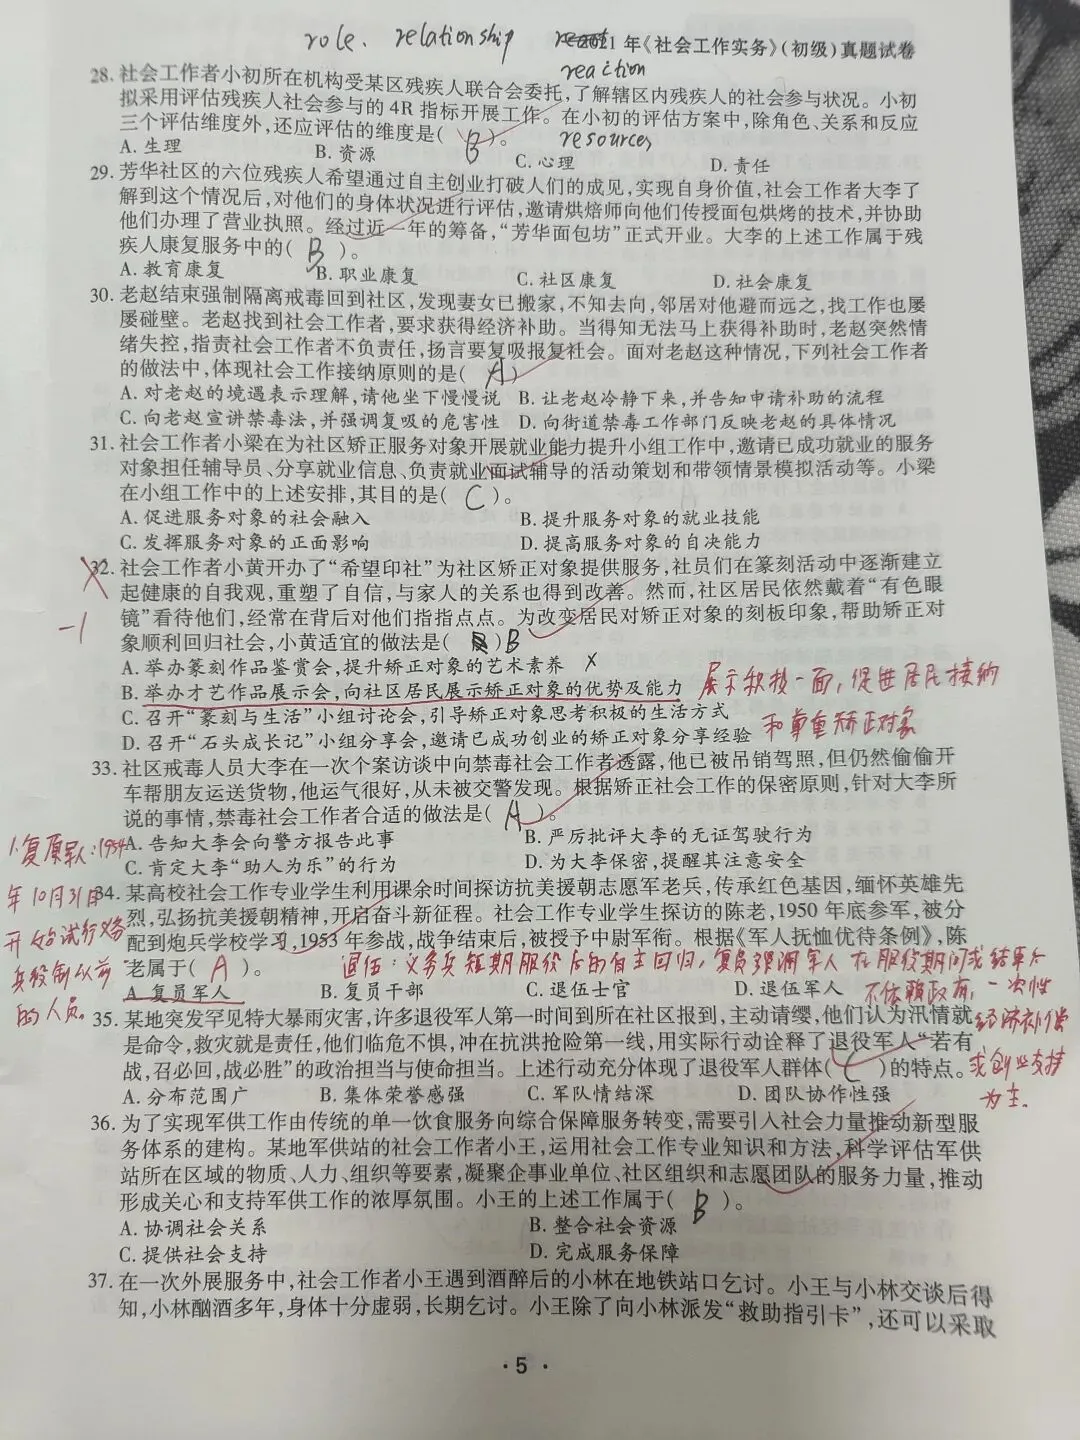 role. relationship
21年《社会工作实务》(初级)真题试卷
reaction
28. 社会工作者小初所在机构受某区残疾人联合会委托,了解辖区内残疾人的社会参与状况。小初
拟采用评估残疾人社会参与的4R指标开展工作。在小初的评估方案中,除角色、关系和反应
三个评估维度外,还应评估的维度是( B )。
resources
A. 生理 B. 资源 C. 心理 D. 责任
29. 芳华社区的六位残疾人希望通过自主创业打破人们的成见,实现自身价值,社会工作者大李了
解到这个情况后,对他们的身体状况进行评估,邀请烘焙师向他们传授面包烘烤的技术,并协助
他们办理了营业执照。经过近一年的筹备,“芳华面包坊”正式开业。大李的上述工作属于残
疾人康复服务中的( B )。
A. 教育康复 B. 职业康复 C. 社区康复 D. 社会康复
30. 老赵结束强制隔离戒毒回到社区,发现妻女已搬家,不知去向,邻居对他避而远之,找工作也屡
屡碰壁。老赵找到社会工作者,要求获得经济补助。当得知无法马上获得补助时,老赵突然情
绪失控,指责社会工作者不负责任,扬言要复吸报复社会。面对老赵这种情况,下列社会工作者
的做法中,体现社会工作接纳原则的是( A )
A. 对老赵的境遇表示理解,请他坐下慢慢说 B. 让老赵冷静下来,并告知申请补助的流程
C. 向老赵宣讲禁毒法,并强调复吸的危害性 D. 向街道禁毒工作部门反映老赵的具体情况
31. 社会工作者小梁在为社区矫正服务对象开展就业能力提升小组工作中,邀请已成功就业的服务
对象担任辅导员、分享就业信息、负责就业面试辅导的活动策划和带领情景模拟活动等。小梁
在小组工作中的上述安排,其目的是( C )。
A. 促进服务对象的社会融入 B. 提升服务对象的就业技能
C. 发挥服务对象的正面影响 D. 提高服务对象的自决能力
32. 社会工作者小黄开办了“希望印社”为社区矫正对象提供服务,社员们在篆刻活动中逐渐建立
起健康的自我观,重塑了自信,与家人的关系也得到改善。然而,社区居民依然戴着“有色眼
镜”看待他们,经常在背后对他们指指点点。为改变居民对矫正对象的刻板印象,帮助矫正对
-1
象顺利回归社会,小黄适宜的做法是( )B
A. 举办篆刻作品鉴赏会,提升矫正对象的艺术素养 ×
B. 举办才艺作品展示会,向社区居民展示矫正对象的优势及能力 展示积极一面,促进居民接纳
C. 召开“篆刻与生活”小组讨论会,引导矫正对象思考积极的生活方式 和尊重矫正对象
D. 召开“石头成长记”小组分享会,邀请已成功创业的矫正对象分享经验
33. 社区戒毒人员大李在一次个案访谈中向禁毒社会工作者透露,他已被吊销驾照,但仍然偷偷开
车帮朋友运送货物,他运气很好,从未被交警发现。根据矫正社会工作的保密原则,针对大李所
说的事情,禁毒社会工作者合适的做法是( A )。
A. 告知大李会向警方报告此事 B. 严厉批评大李的无证驾驶行为
C. 肯定大李“助人为乐”的行为 D. 为大李保密,提醒其注意安全
1.复原军人:1954
年10月31日
开始试行义务
兵役制以前
的人员。
34. 某高校社会工作专业学生利用课余时间探访抗美援朝志愿军老兵,传承红色基因,缅怀英雄先
烈,弘扬抗美援朝精神,开启奋斗新征程。社会工作专业学生探访的陈老,1950年底参军,被分
配到炮兵学校学习,1953年参战,战争结束后,被授予中尉军衔。根据《军人抚恤优待条例》,陈
老属于( A )。
退伍:义务兵短期服役后的自主回归,复员强调军人在服役期间或结束后
不依赖政府,一次性
经济补偿
或创业支持
为主.
A. 复员军人 B. 复员干部 C. 退伍士官 D. 退伍军人
35. 某地突发罕见特大暴雨灾害,许多退役军人第一时间到所在社区报到,主动请缨,他们认为汛情就
是命令,救灾就是责任,他们临危不惧,冲在抗洪抢险第一线,用实际行动诠释了退役军人“若有
战,召必回,战必胜”的政治担当与使命担当。上述行动充分体现了退役军人群体( C )的特点。
A. 分布范围广 B. 集体荣誉感强 C. 军队情结深 D. 团队协作性强
36. 为了实现军供工作由传统的单一饮食服务向综合保障服务转变,需要引入社会力量推动新型服
务体系的建构。某地军供站的社会工作者小王,运用社会工作专业知识和方法,科学评估军供
站所在区域的物质、人力、组织等要素,凝聚企事业单位、社区组织和志愿团队的服务力量,推动
形成关心和支持军供工作的浓厚氛围。小王的上述工作属于( B )。
A. 协调社会关系 B. 整合社会资源
C. 提供社会支持 D. 完成服务保障
37. 在一次外展服务中,社会工作者小王遇到酒醉后的小林在地铁站口乞讨。小王与小林交谈后得
知,小林酗酒多年,身体十分虚弱,长期乞讨。小王除了向小林派发“救助指引卡”,还可以采取
· 5 ·